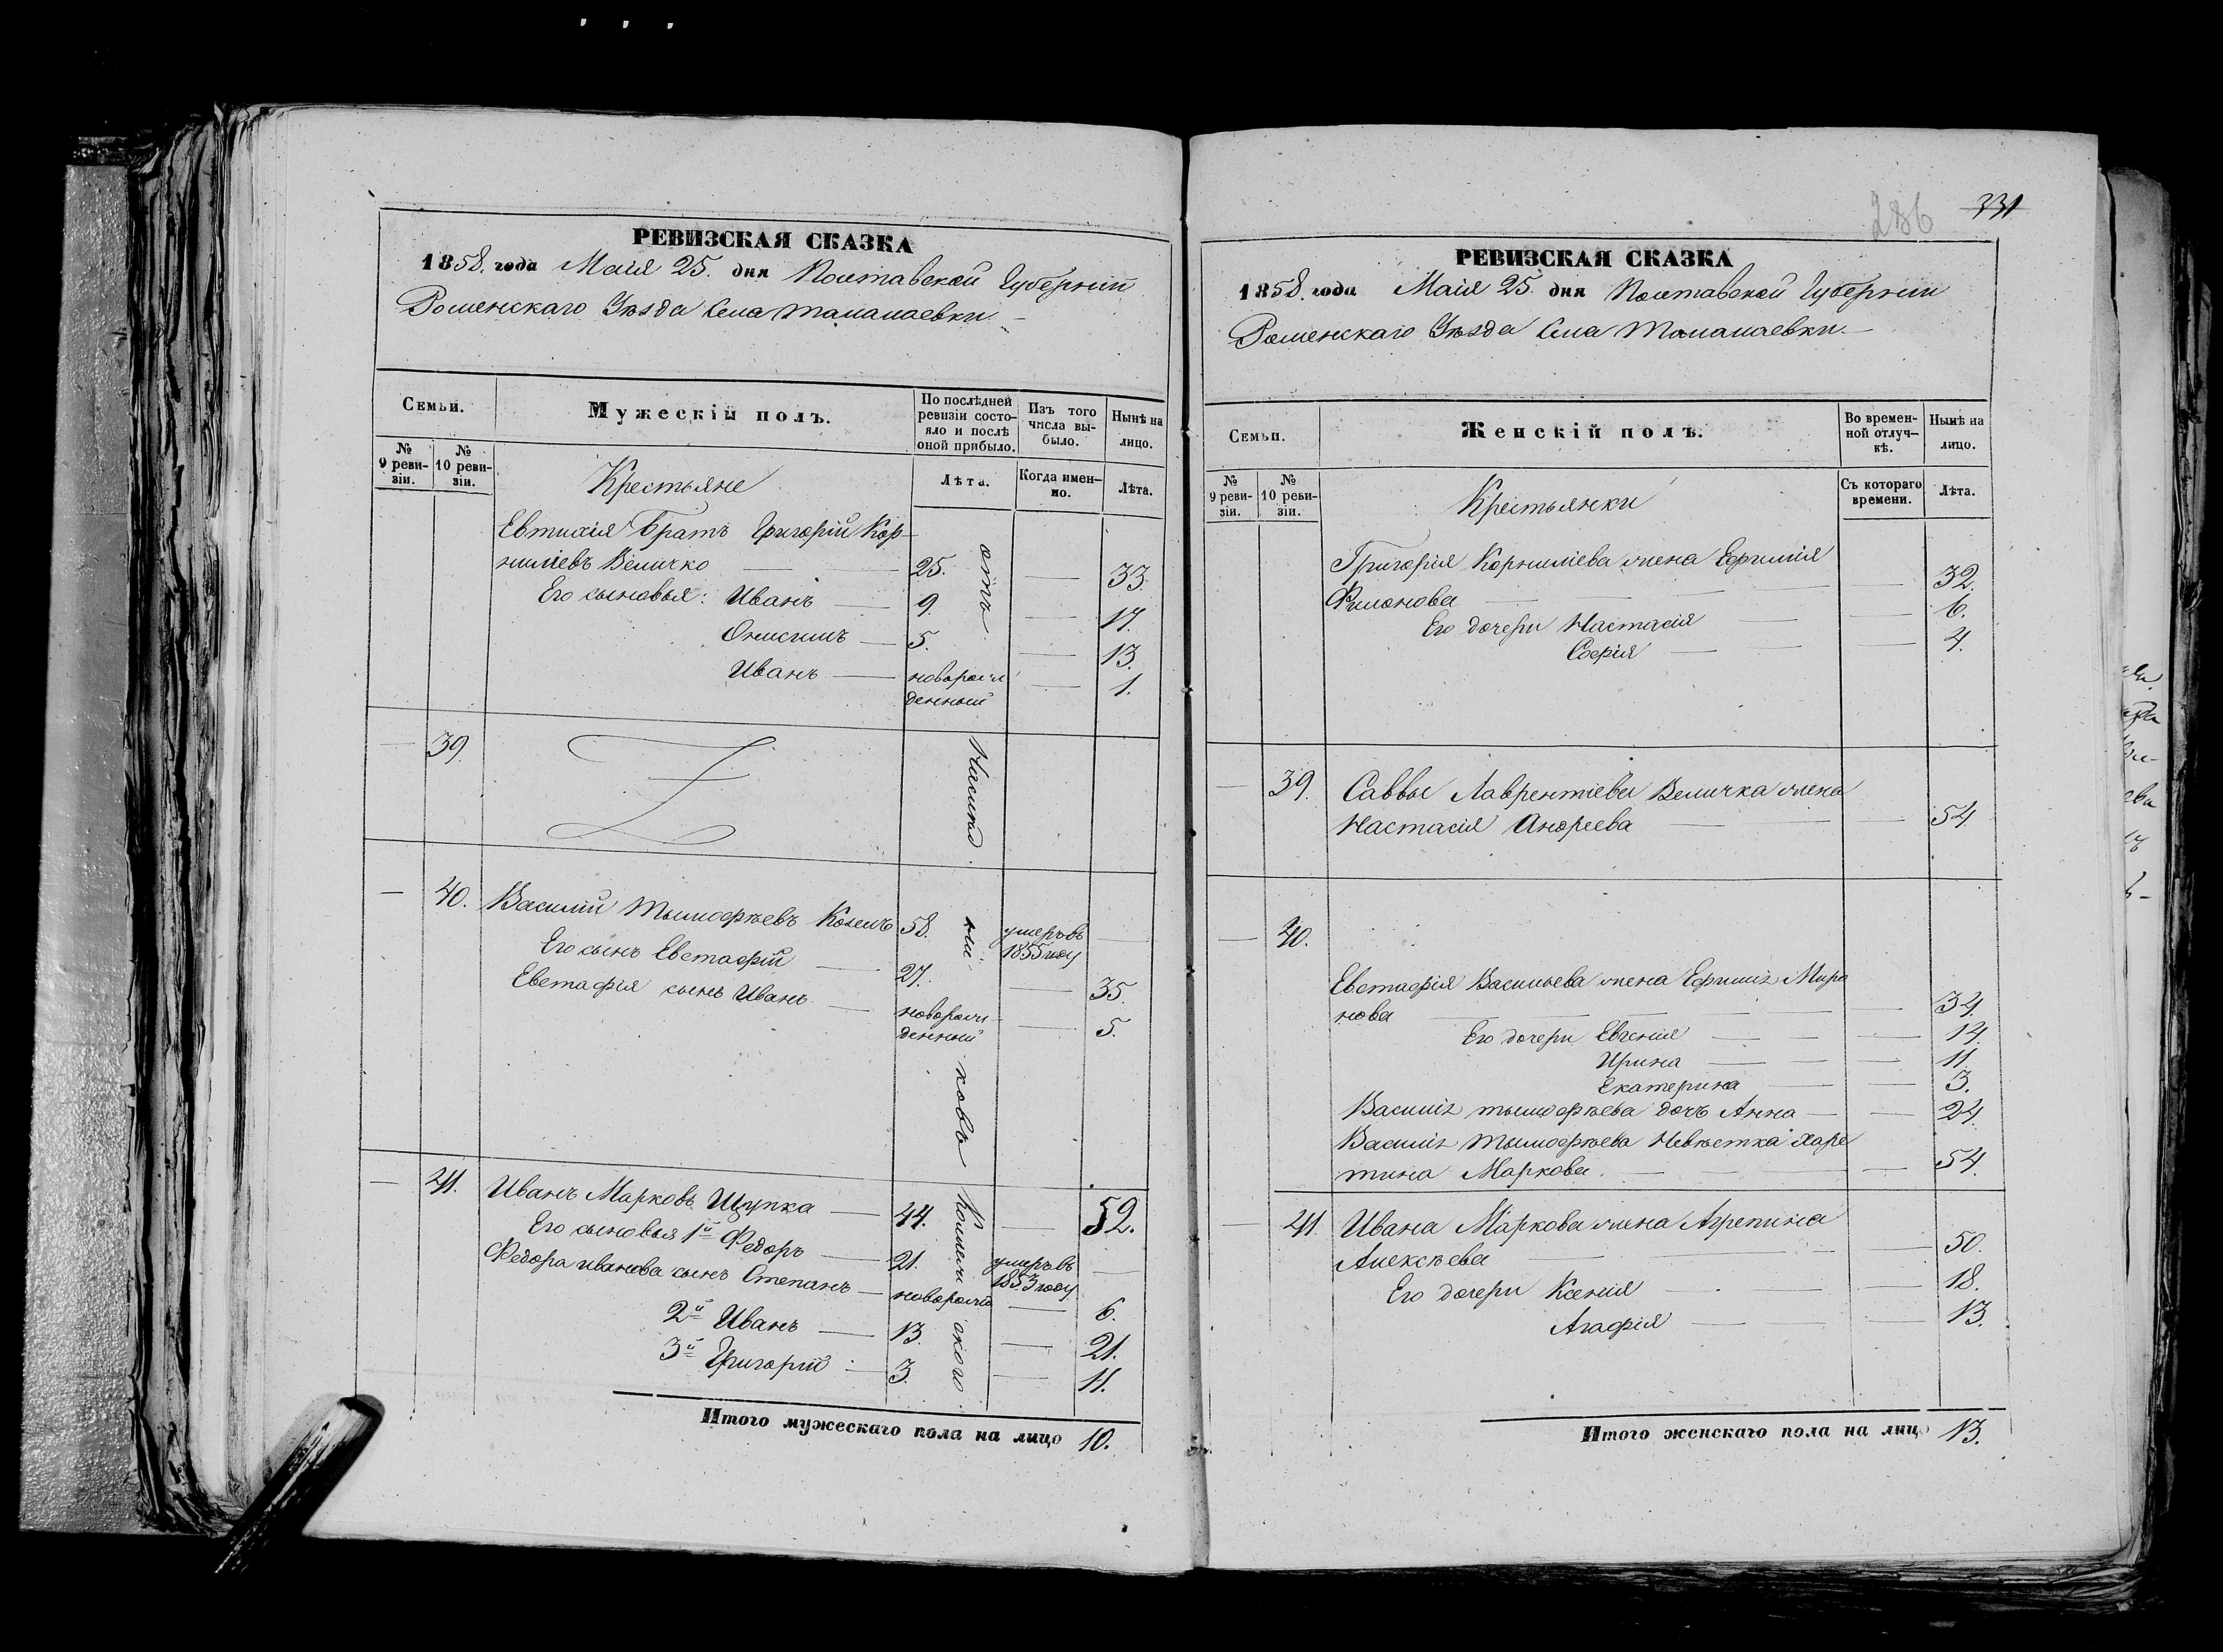 РЕВИЗСКАЯ СКАЗКА
1858. года Маія 25. дня Полтавской Губерніи
Роменскаго Уѣзда Села Талалаевки
Семьи.
Мужескій полъ.
По послѣдней ревизіи состо-
яло и послѣ
оной прибыло.
Изъ того
числа вы-
было.
Нынѣ на
лицо.
№
9 реви-
зіи.
№
10 реви-
зіи.
Крестьяне
Лѣта.
Когда имен-
но.
Лѣта.
Евтихія Братъ Григорій Кор-
ниліевъ Величко 25. 33.
Его сыновья: Иванъ 9. 17.
Онисимъ 5. 13.
Иванъ новорож
денный 1.
39.
40. Василій Тимофѣевъ 58. умеръ въ
1855 году
Его сынъ Евстафій 27. 35.
Евстафія сынъ Иванъ новорож-
денный 5.
41. Иванъ Марковъ Щупка 44. 52.
Его сыновья 1й Федоръ 21. умеръ въ
1853 году
Федора Иванова сынъ Степанъ новорожд 6.
2й Иванъ 13. 21.
3й Григорій 3. 11.
Итого мужескаго пола на лицо 10.
286 331
РЕВИЗСКАЯ СКАЗКА
1858. года Маія 25. дня Полтавской Губерніи
Роменскаго Уѣзда Села Талалаевки.
Семьи.
Женскій полъ.
Во времен-
ной отлуч-
кѣ.
Нынѣ на
лицо.
№
9 реви-
зіи.
№
10 реви-
зіи.
Крестьянки
Съ котораго
времени.
Лѣта.
Григорія Корниліева жена Ефимія
Филонова 32.
Его дочери Настасія 6.
Софія 4.
39. Саввы Лаврентіева Величка жена
Настасія Андреева 54
40.
Евстафія Васильева жена Ефимія Миро
нова 34.
Его дочери Евгенія 14.
Ирина 11.
Екатерина 3.
Василія Тимофѣева дочь Анна 24.
Василія Тимофѣева Невѣстка Харе
тина Маркова. 54.
41. Ивана Маркова жена Агрепина
Алексѣева 50.
Его дочери Ксенія 18.
Агафія 13.
Итого женскаго пола на лицо 13.